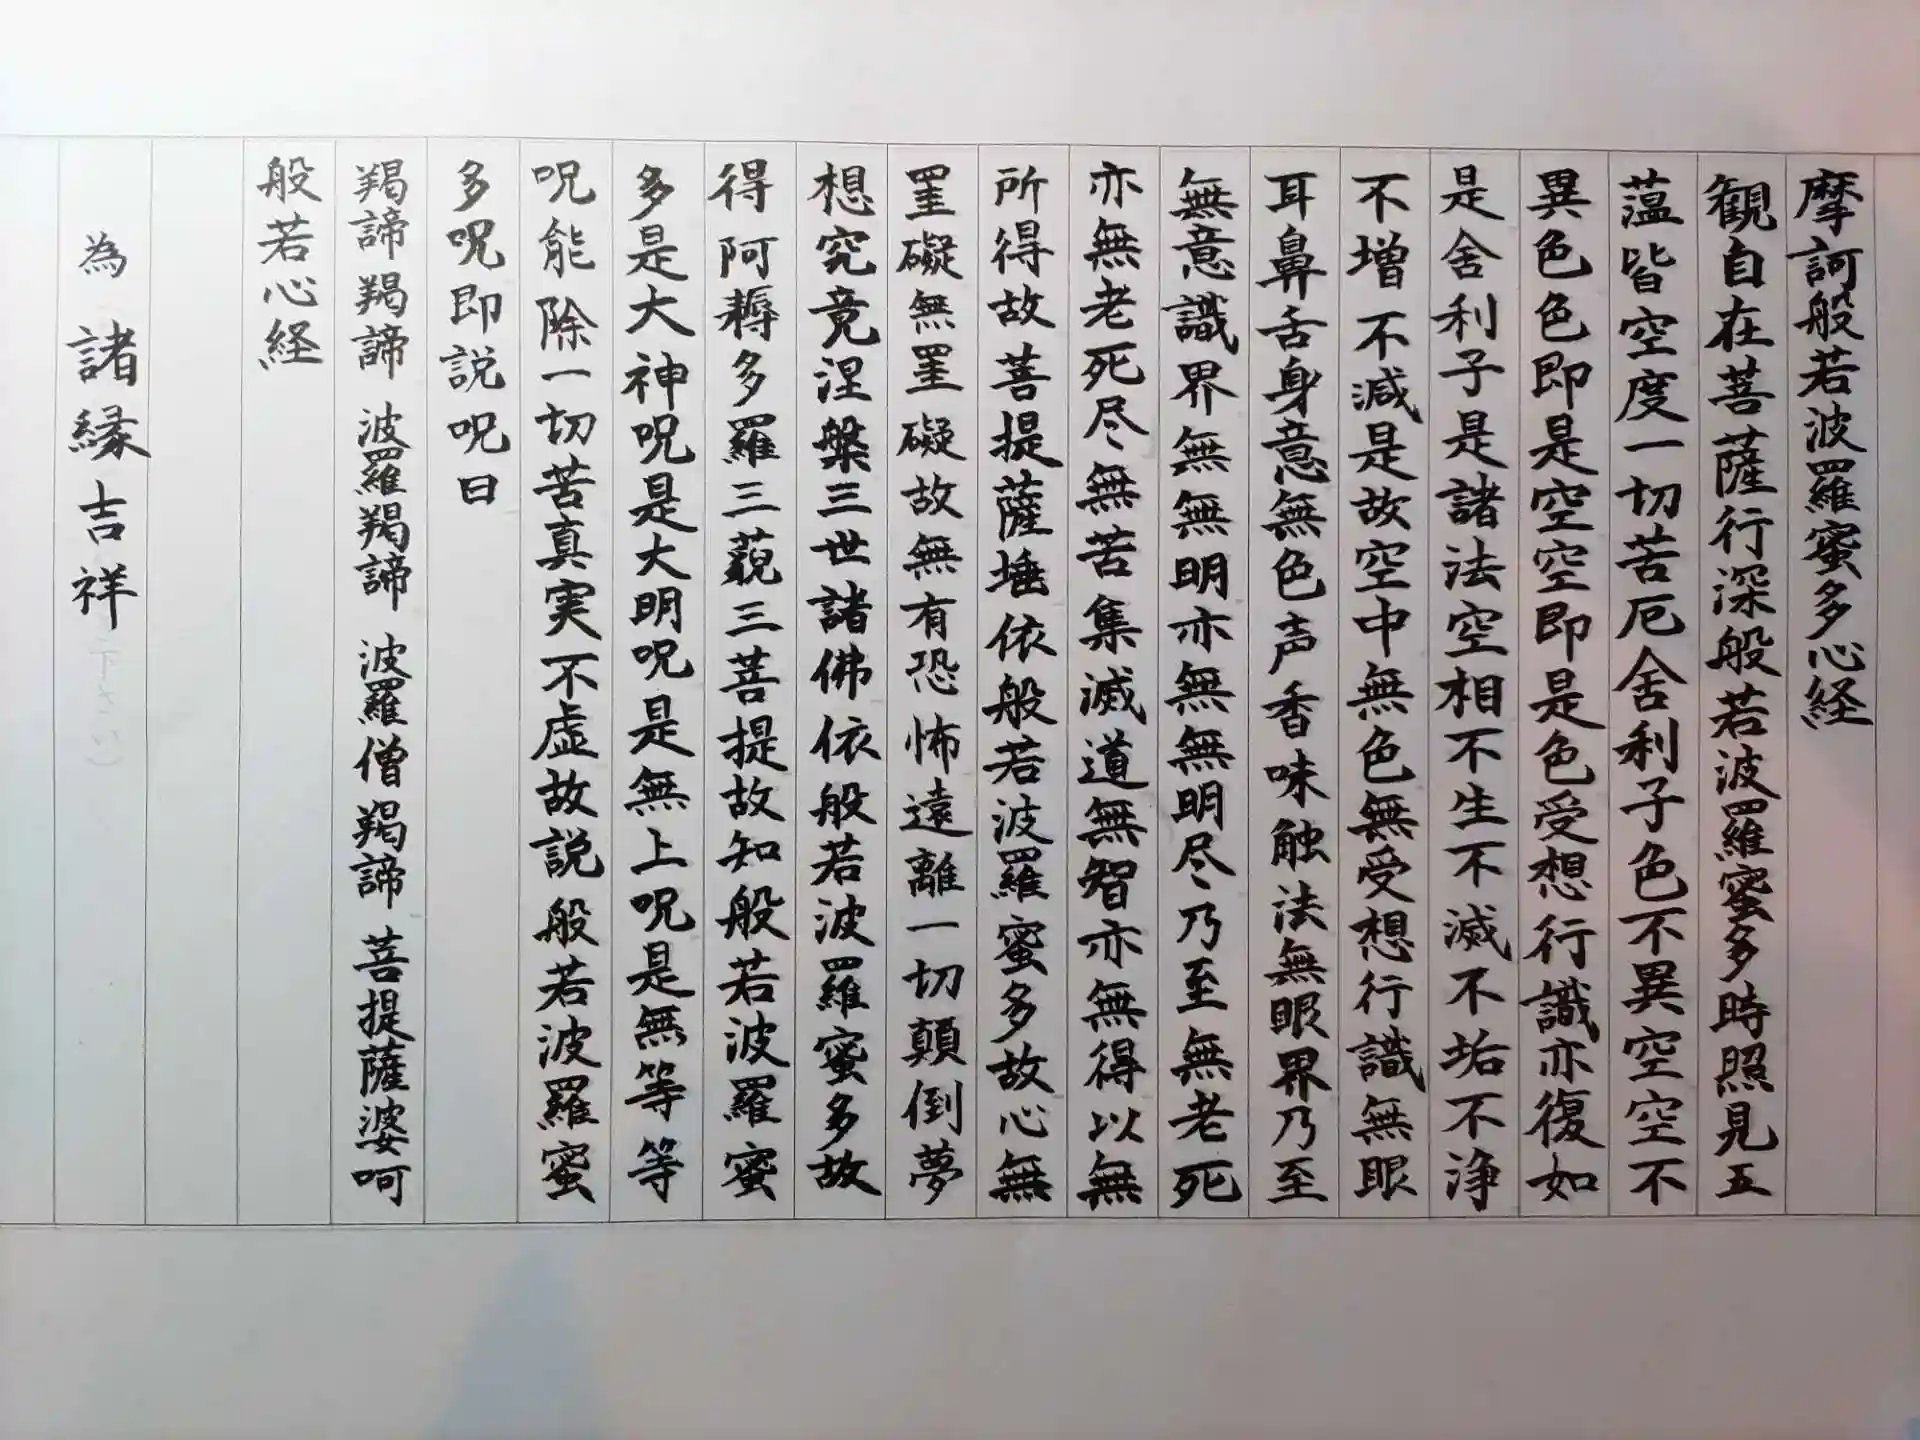 摩訶般若波羅蜜多心経
観自在菩薩行深般若波羅蜜多時照見五
薀皆空度一切苦厄舎利子色不異空空不
異色色即是空空即是色受想行識亦復如
是舎利子是諸法空相不生不滅不垢不浄
不増不減是故空中無色無受想行識無眼
耳鼻舌身意無色声香味触法無眼界乃至
無意識界無無明亦無無明尽乃至無老死
亦無老死尽無苦集滅道無智亦無得以無
所得故菩提薩埵依般若波羅蜜多故心無
罣礙無罣礙故無有恐怖遠離一切顛倒夢
想究竟涅槃三世諸佛依般若波羅蜜多故
得阿耨多羅三藐三菩提故知般若波羅蜜
多是大神呪是大明呪是無上呪是無等等
呪能除一切苦真実不虚故説般若波羅蜜
多呪即説呪曰
羯諦羯諦 波羅羯諦 波羅僧羯諦 菩提薩婆呵
般若心経
為 諸縁吉祥
下さい）